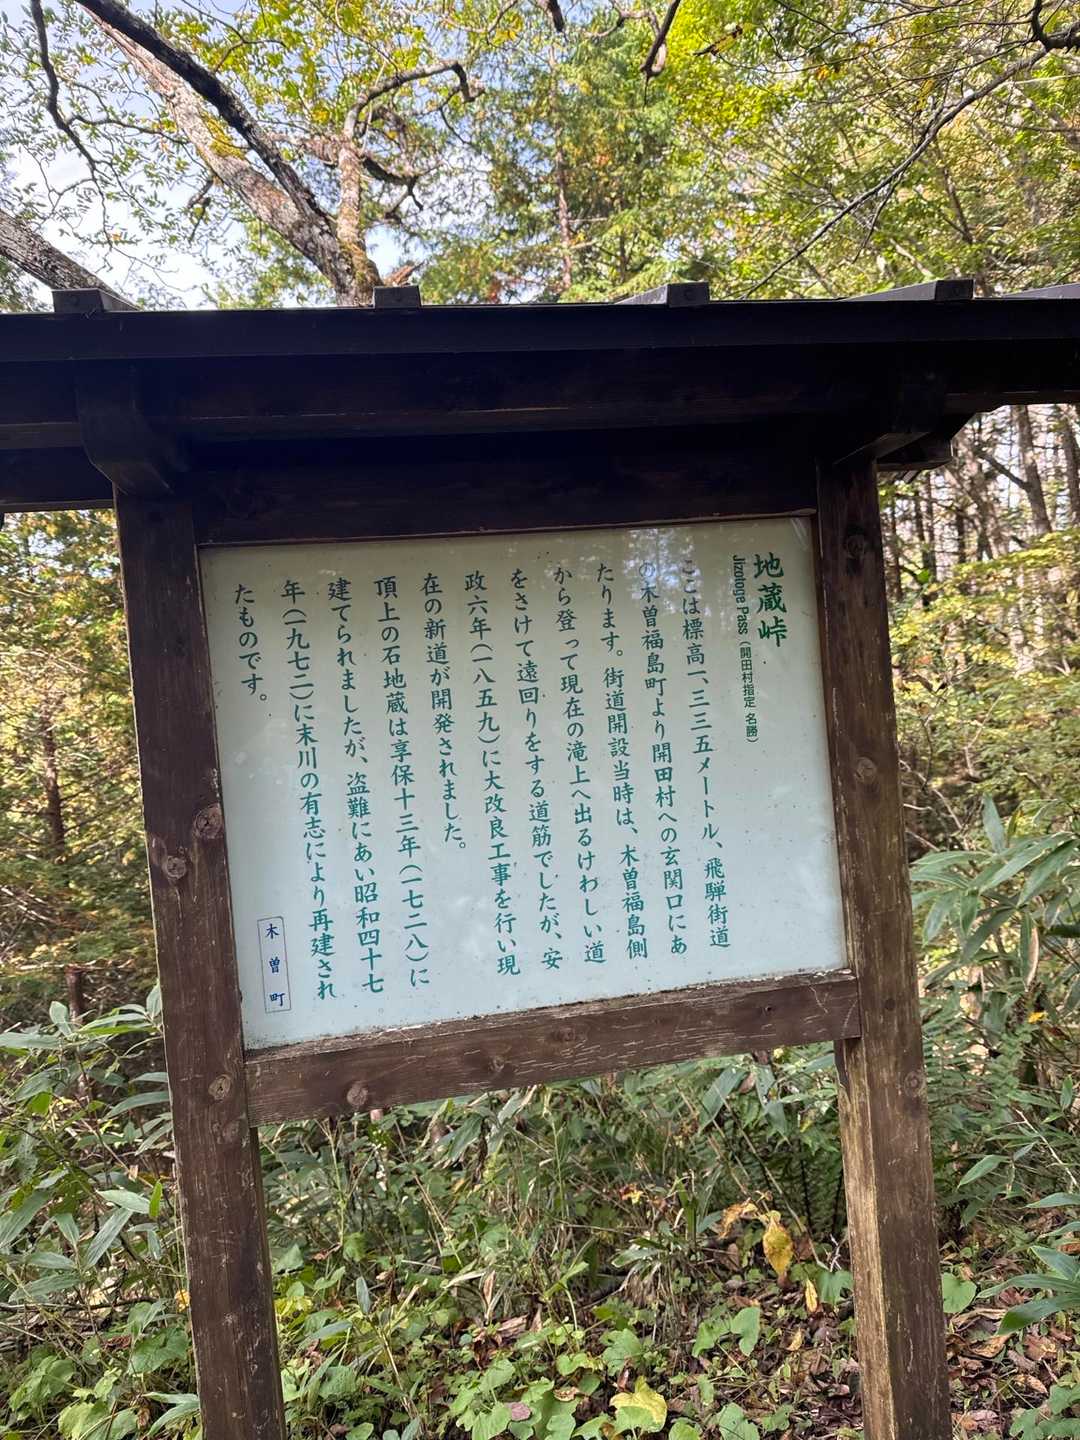 地蔵峠
Jizotoge Pass（開田村指定 名勝）
ここは標高一、三三五メートル、飛騨街道
の木曽福島町より開田村への玄関口にあ
たります。街道開設当時は、木曽福島側
から登って現在の滝上へ出るけわしい道
をさけて遠回りをする道筋でしたが、安
政六年（一八五九）に大改良工事を行い現
在の新道が開発されました。
頂上の石地蔵は享保十三年（一七二八）に
建てられましたが、盗難にあい昭和四十七
年（一九七二）に末川の有志により再建され
たものです。
木曽町